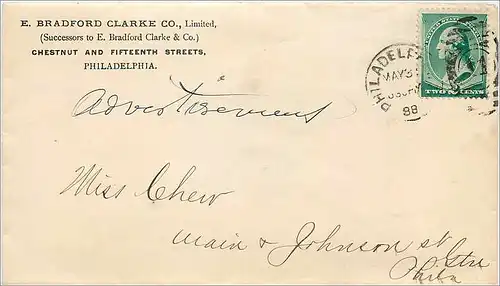 E. BRADFORD CLARKE CO., Limited,
(Successors to E. Bradford Clarke & Co.)
CHESTNUT AND FIFTEENTH STREETS,
PHILADELPHIA.
PHILADELPH
MAY 3
PM
88
TWO CENTS
Advertisement
Miss Chew
Main & Johnson st
Phila